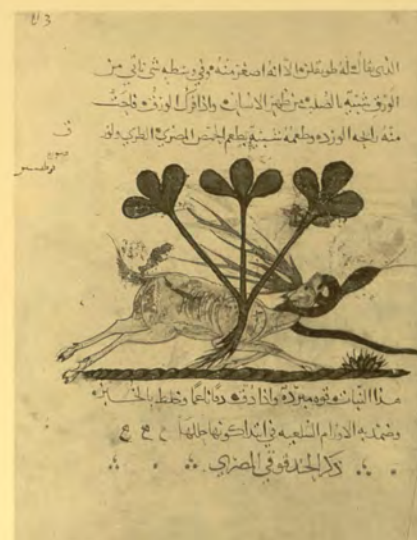 الذي يقال له طوبقلن الا انه اصغر منه وفي وسطه شي ناتي من
الورق شبيه بالصليب من ظهر الاسان واذا فرك الورق فاحت
منه رايحه وطعمه شبيه بطعم الحمص المصري الطري
هذا النبات قوه مبردة واذا دق دقا ناعما وخلط بالخبز
وضمد به الاورام البلغميه في ابتدا كونها حللها
ذكر الحندقوقي المصري